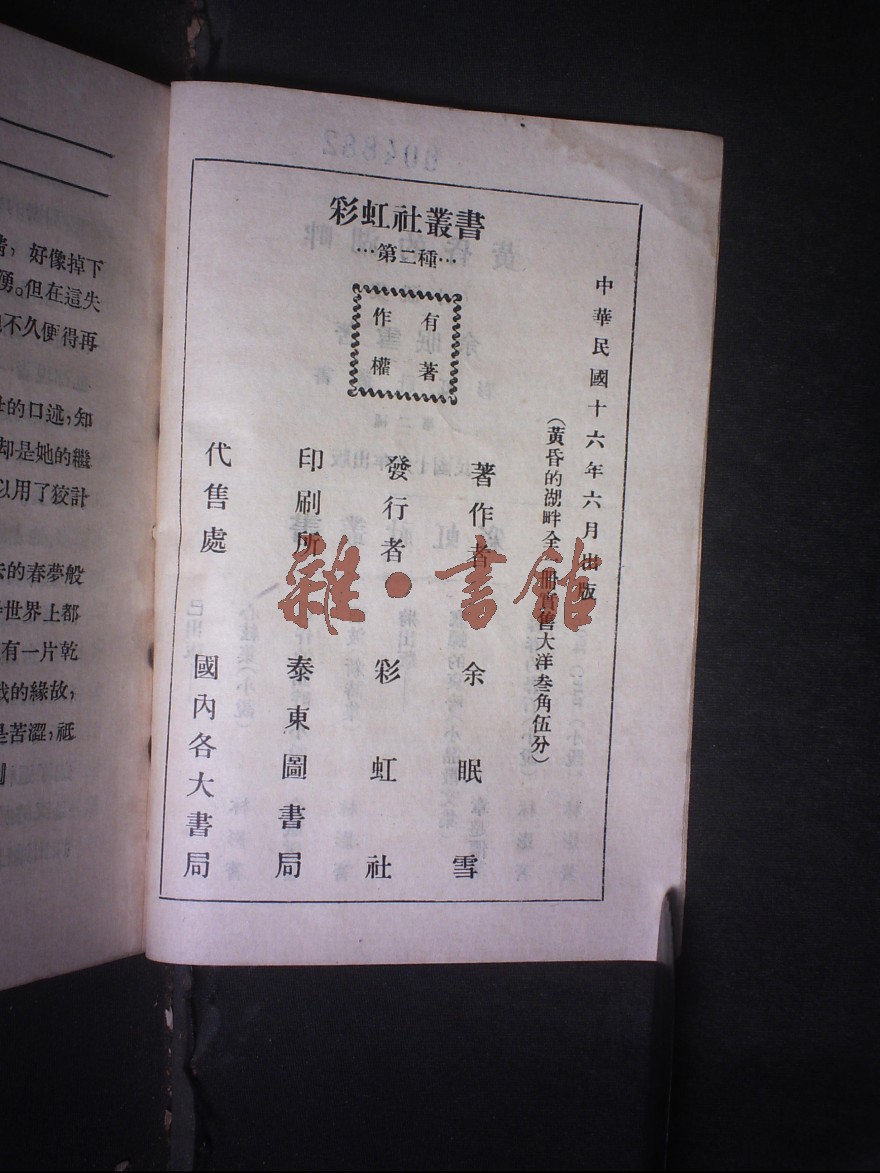 彩虹社叢書
…第二種…
有著
作權
中華民國十六年六月出版
(黃昏的湖畔全一冊實售大洋叁角伍分)
著作者 余眠雪
發行者 彩虹社
印刷所 泰東圖書局
代售處 國內各大書局
雜·書館
,好像掉下
湧。但在這失
不久便得再
的口述,知
却是她的繼
以用了狡計
去的春夢般
世界上都
有一片乾
我的緣故,
是苦澀,祇